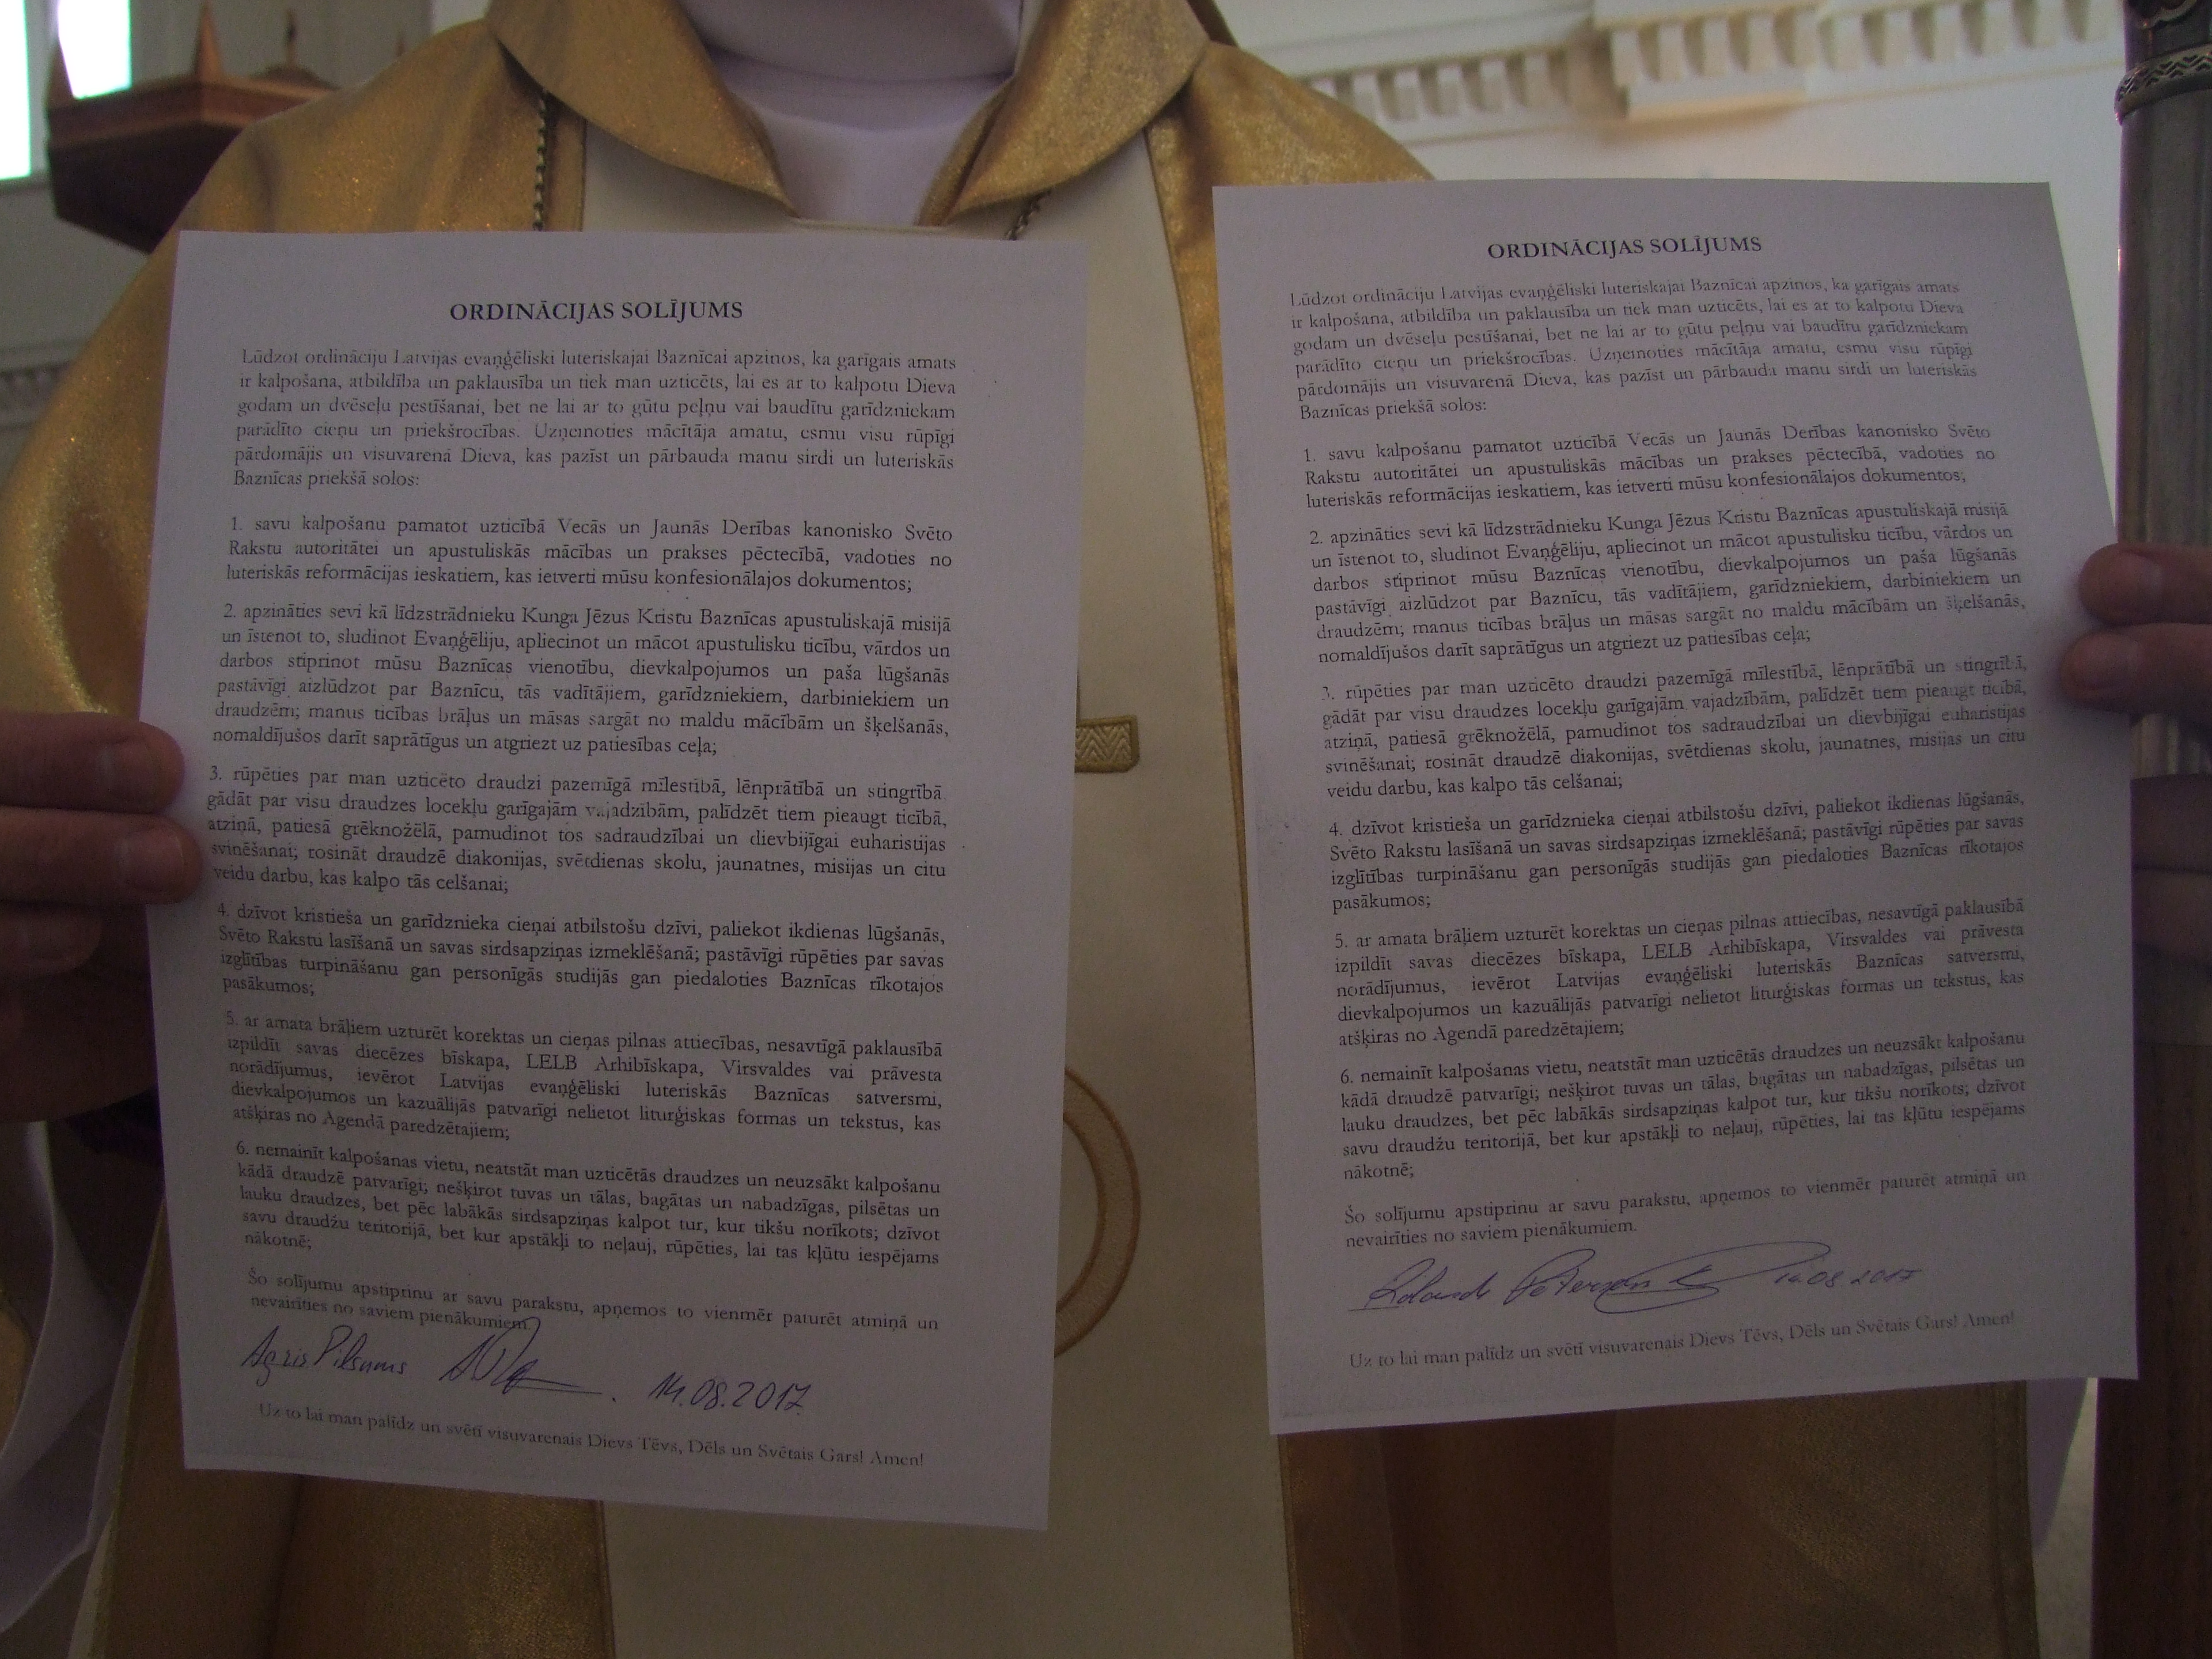 ORDINĀCIJAS SOLĪJUMS
Lūdzot ordināciju Latvijas evaņģēliski luteriskajai Baznīcai apzinos, ka garīgais amats
ir kalpošana, atbildība un paklausība un tiek man uzticēts, lai es ar to kalpotu Dieva
godam un dvēseļu pestīšanai, bet ne lai ar to gūtu peļņu vai baudītu garīdzniekam
parādīto cieņu un priekšrocības. Uzņemoties mācītāja amatu, esmu visu rūpīgi
pārdomājis un visuvarenā Dieva, kas pazīst un pārbauda manu sirdi un luteriskās
Baznīcas priekšā solos:
1. savu kalpošanu pamatot uzticībā Vecās un Jaunās Derības kanonisko Svēto
Rakstu autoritātei un apustuliskās mācības un prakses pēctecībā, vadoties no
luteriskās reformācijas ieskatiem, kas ietverti mūsu konfesionālajos dokumentos;
2. apzināties sevi kā līdzstrādnieku Kunga Jēzus Kristu Baznīcas apustuliskajā misijā
un īstenot to, sludinot Evaņģēliju, apliecinot un mācot apustulisku ticību, vārdos un
darbos stiprinot mūsu Baznīcas vienotību, dievkalpojumos un paša lūgšanās
pastāvīgi aizlūdzot par Baznīcu, tās vadītājiem, garīdzniekiem, darbiniekiem un
draudzēm; manus ticības brāļus un māsas sargāt no maldu mācībām un šķelšanās,
nomaldījušos darīt saprātīgus un atgriezt uz patiesības ceļa;
3. rūpēties par man uzticēto draudzi pazemīgā mīlestībā, lēnprātībā un stingrībā,
gādāt par visu draudzes locekļu garīgajām vajadzībām, palīdzēt tiem pieaugt ticībā,
atziņā, patiesā grēknožēlā, pamudinot tos sadraudzībai un dievbijīgai euharistijas
svinēšanai; rosināt draudzē diakonijas, svētdienas skolu, jaunatnes, misijas un citu
veidu darbu, kas kalpo tās celšanai;
4. dzīvot kristieša un garīdznieka cieņai atbilstošu dzīvi, paliekot ikdienas lūgšanās,
Svēto Rakstu lasīšanā un savas sirdsapziņas izmeklēšanā; pastāvīgi rūpēties par savas
izglītības turpināšanu gan personīgās studijās gan piedaloties Baznīcas rīkotajos
pasākumos;
5. ar amata brāļiem uzturēt korektas un cieņas pilnas attiecības, nesavtīgā paklausībā
izpildīt savas diecēzes bīskapa, LELB Arhibīskapa, Virsvaldes vai prāvesta
norādījumus, ievērot Latvijas evaņģēliski luteriskās Baznīcas satversmi,
dievkalpojumos un kazuālijās patvarīgi nelietot liturģiskas formas un tekstus, kas
atšķiras no Agendā paredzētajiem;
6. nemainīt kalpošanas vietu, neatstāt man uzticētās draudzes un neuzsākt kalpošanu
kādā draudzē patvarīgi; nešķirot tuvas un tālas, bagātas un nabadzīgas, pilsētas un
lauku draudzes, bet pēc labākās sirdsapziņas kalpot tur, kur tikšu norīkots; dzīvot
savu draudžu teritorijā, bet kur apstākļi to neļauj, rūpēties, lai tas kļūtu iespējams
nākotnē;
Šo solījumu apstiprinu ar savu parakstu, apņemos to vienmēr paturēt atmiņā un
nevairīties no saviem pienākumiem.
Agris Pilsums 14.08.2017.
Uz to lai man palīdz un svētī visuvarenais Dievs Tēvs, Dēls un Svētais Gars! Amen!
ORDINĀCIJAS SOLĪJUMS
Lūdzot ordināciju Latvijas evaņģēliski luteriskajai Baznīcai apzinos, ka garīgais amats
ir kalpošana, atbildība un paklausība un tiek man uzticēts, lai es ar to kalpotu Dieva
godam un dvēseļu pestīšanai, bet ne lai ar to gūtu peļņu vai baudītu garīdzniekam
parādīto cieņu un priekšrocības. Uzņemoties mācītāja amatu, esmu visu rūpīgi
pārdomājis un visuvarenā Dieva, kas pazīst un pārbauda manu sirdi un luteriskās
Baznīcas priekšā solos:
1. savu kalpošanu pamatot uzticībā Vecās un Jaunās Derības kanonisko Svēto
Rakstu autoritātei un apustuliskās mācības un prakses pēctecībā, vadoties no
luteriskās reformācijas ieskatiem, kas ietverti mūsu konfesionālajos dokumentos;
2. apzināties sevi kā līdzstrādnieku Kunga Jēzus Kristu Baznīcas apustuliskajā misijā
un īstenot to, sludinot Evaņģēliju, apliecinot un mācot apustulisku ticību, vārdos un
darbos stiprinot mūsu Baznīcas vienotību, dievkalpojumos un paša lūgšanās
pastāvīgi aizlūdzot par Baznīcu, tās vadītājiem, garīdzniekiem, darbiniekiem un
draudzēm; manus ticības brāļus un māsas sargāt no maldu mācībām un šķelšanās,
nomaldījušos darīt saprātīgus un atgriezt uz patiesības ceļa;
3. rūpēties par man uzticēto draudzi pazemīgā mīlestībā, lēnprātībā un stingrībā,
gādāt par visu draudzes locekļu garīgajām vajadzībām, palīdzēt tiem pieaugt ticībā,
atziņā, patiesā grēknožēlā, pamudinot tos sadraudzībai un dievbijīgai euharistijas
svinēšanai; rosināt draudzē diakonijas, svētdienas skolu, jaunatnes, misijas un citu
veidu darbu, kas kalpo tās celšanai;
4. dzīvot kristieša un garīdznieka cieņai atbilstošu dzīvi, paliekot ikdienas lūgšanās,
Svēto Rakstu lasīšanā un savas sirdsapziņas izmeklēšanā; pastāvīgi rūpēties par savas
izglītības turpināšanu gan personīgās studijās gan piedaloties Baznīcas rīkotajos
pasākumos;
5. ar amata brāļiem uzturēt korektas un cieņas pilnas attiecības, nesavtīgā paklausībā
izpildīt savas diecēzes bīskapa, LELB Arhibīskapa, Virsvaldes vai prāvesta
norādījumus, ievērot Latvijas evaņģēliski luteriskās Baznīcas satversmi,
dievkalpojumos un kazuālijās patvarīgi nelietot liturģiskas formas un tekstus, kas
atšķiras no Agendā paredzētajiem;
6. nemainīt kalpošanas vietu, neatstāt man uzticētās draudzes un neuzsākt kalpošanu
kādā draudzē patvarīgi; nešķirot tuvas un tālas, bagātas un nabadzīgas, pilsētas un
lauku draudzes, bet pēc labākās sirdsapziņas kalpot tur, kur tikšu norīkots; dzīvot
savu draudžu teritorijā, bet kur apstākļi to neļauj, rūpēties, lai tas kļūtu iespējams
nākotnē;
Šo solījumu apstiprinu ar savu parakstu, apņemos to vienmēr paturēt atmiņā un
nevairīties no saviem pienākumiem.
14.08.2017
Uz to lai man palīdz un svētī visuvarenais Dievs Tēvs, Dēls un Svētais Gars! Amen!